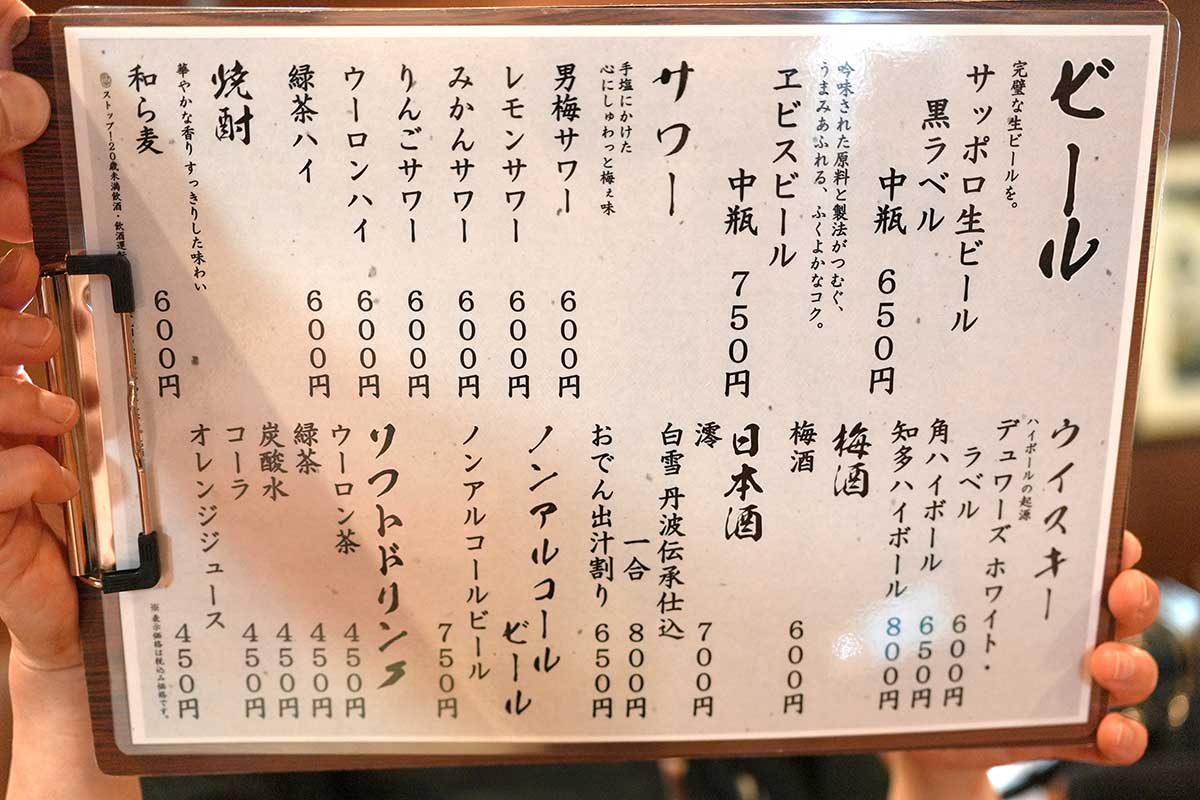 ビール
完璧な生ビールを。
サッポロ生ビール
黒ラベル
中瓶 650円
吟味された原料と製法がつむぐ、
うまみあふれる、ふくよかなコク。
ヱビスビール
中瓶 750円
サワー
手塩にかけた
心にしゅわっと梅ぇ味
男梅サワー 600円
レモンサワー 600円
みかんサワー 600円
りんごサワー 600円
ウーロンハイ 600円
緑茶ハイ 600円
焼酎
華やかな香りすっきりした味わい
和ら麦 600円
ストップ!20歳未満飲酒・飲酒運転
ウイスキー
ハイボールの起源
デュワーズ ホワイト・
ラベル 600円
角ハイボール 650円
知多ハイボール 800円
梅酒
梅酒 600円
日本酒
澪 700円
白雪 丹波伝承仕込
一合 800円
おでん出汁割り 650円
ノンアルコール
ビール
ノンアルコールビール 750円
ソフトドリンク
ウーロン茶 450円
緑茶 450円
炭酸水 450円
コーラ 450円
オレンジジュース 450円
※表示価格は税込み価格です。